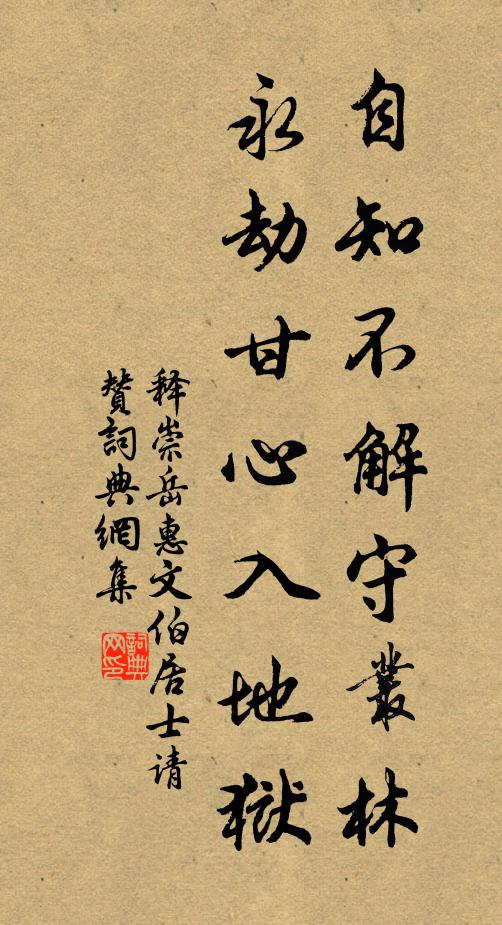 自知不解守叢林
永劫甘心入地獄
释崇岳惠文伯居士请
赞詞典網集
詞典网印